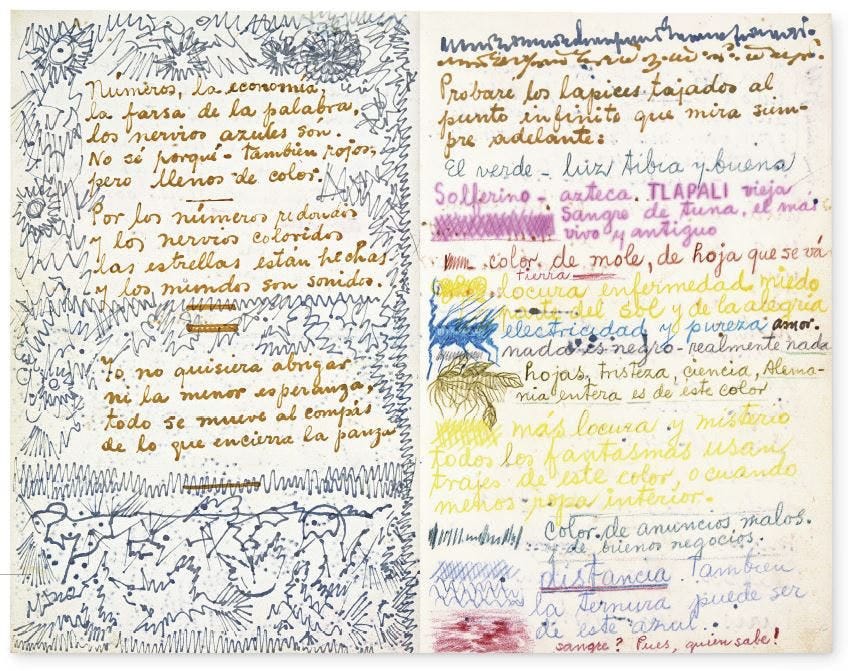 Números, la economía,
la farsa de la palabra,
los nervios azules són.
No sé porqué - tambien rojos,
pero llenos de color.
Por los números redondos
y los nervios coloridos
las estrellas están hechas
y los mundos son sonidos.
Yo no quisiera abrigar
ni la menor esperanza,
todo se mueve al compás
de lo que encierra la panza
Probare los lapices tajados al
punto infinito que mira siem-
pre adelante:
El verde - luz tibia y buena
Solferino - azteca. TLAPALI vieja
sangre de tuna, el más
vivo y antiguo
color de mole, de hoja que se vá
tierra
locura enfermedad miedo
parte del sol y de la alegria
electricidad y pureza amor.
nada es negro - realmente nada
hojas, tristeza, ciencia, Alema-
nia entera es de este color
más locura y misterio
todos los fantasmas usan
trajes de este color, o cuando
menos ropa interior.
color de anuncios malos.
y de buenos negocios.
distancia. Tambien
la ternura puede ser
de este azul
sangre? Pues, quien sabe!